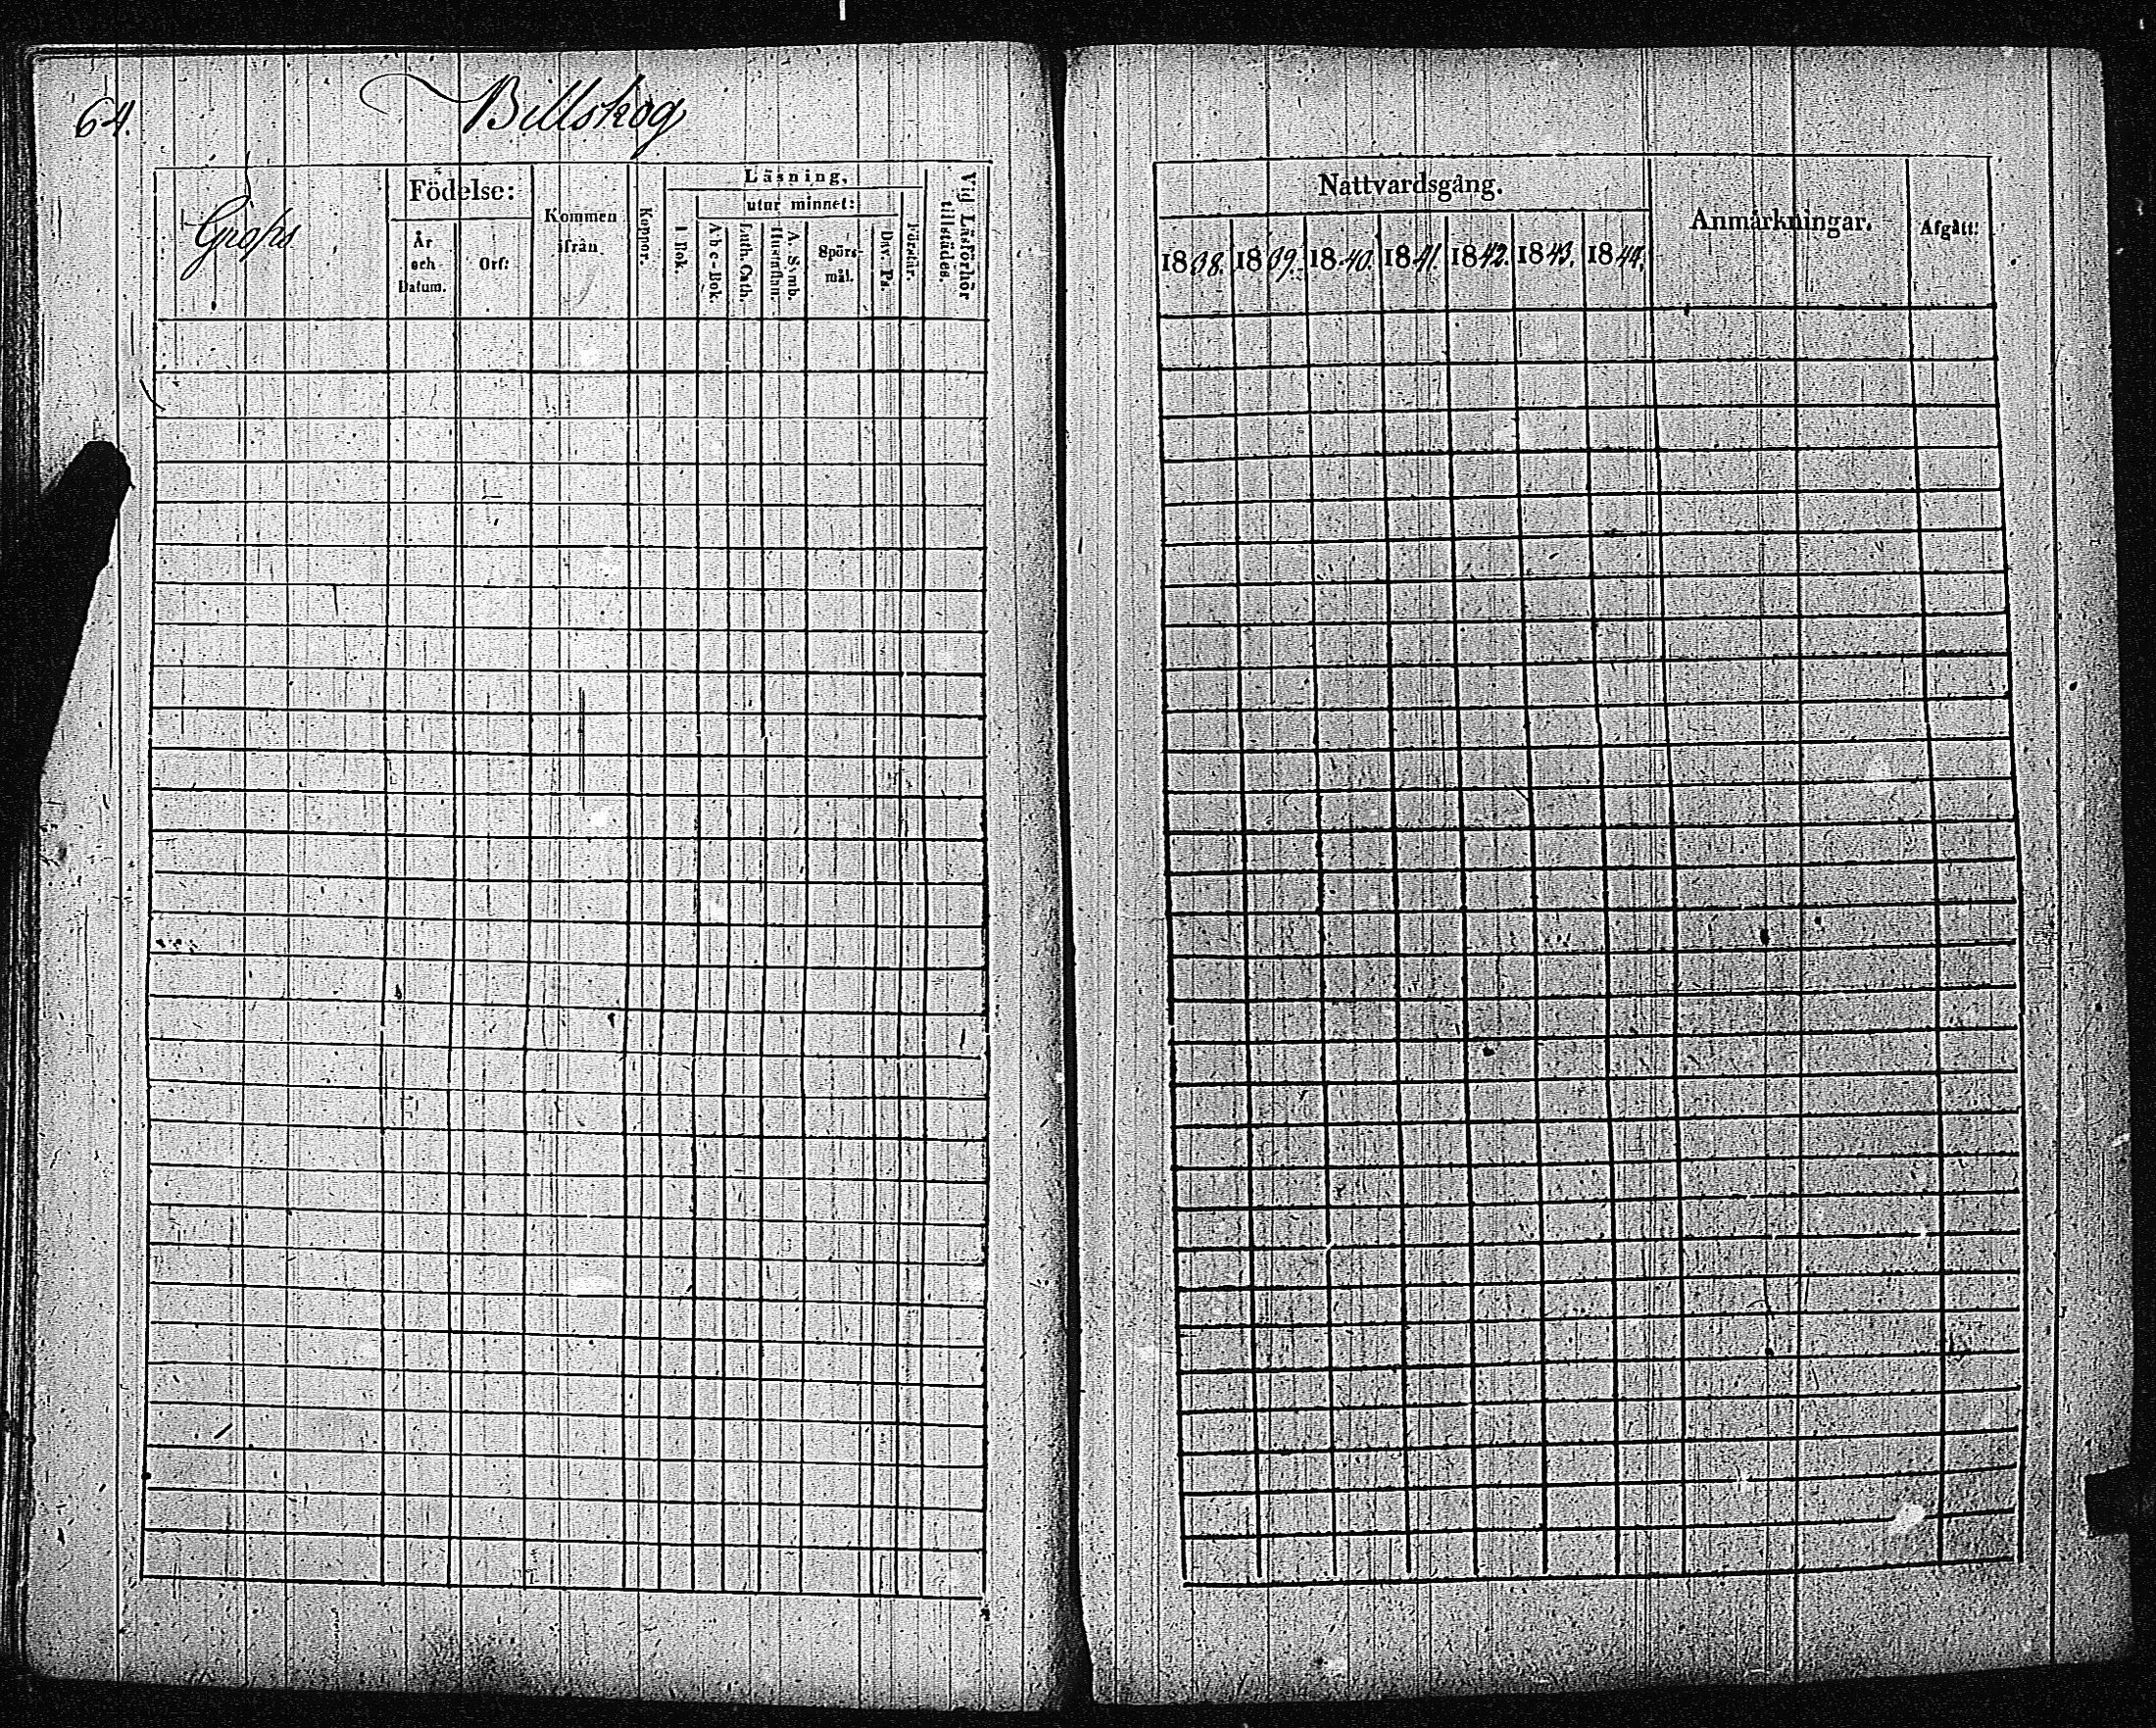 64.
Billskog
Grops
Födelse:
År
och
Datum.
Ort:
Kommen
ifrån
Koppor.
Läsning,
I Bok.
utur minnet:
A b c-Bok.
Luth. Cath.
Hustaflan.
A. Symb.
Spörs-
mål.
Dav. Ps.
Förstår.
Vid Läsförhör
tillstädes.
Nattvardsgång.
1838. 1839. 1840. 1841. 1842. 1843. 1844.
Anmärkningar.
Afgått: